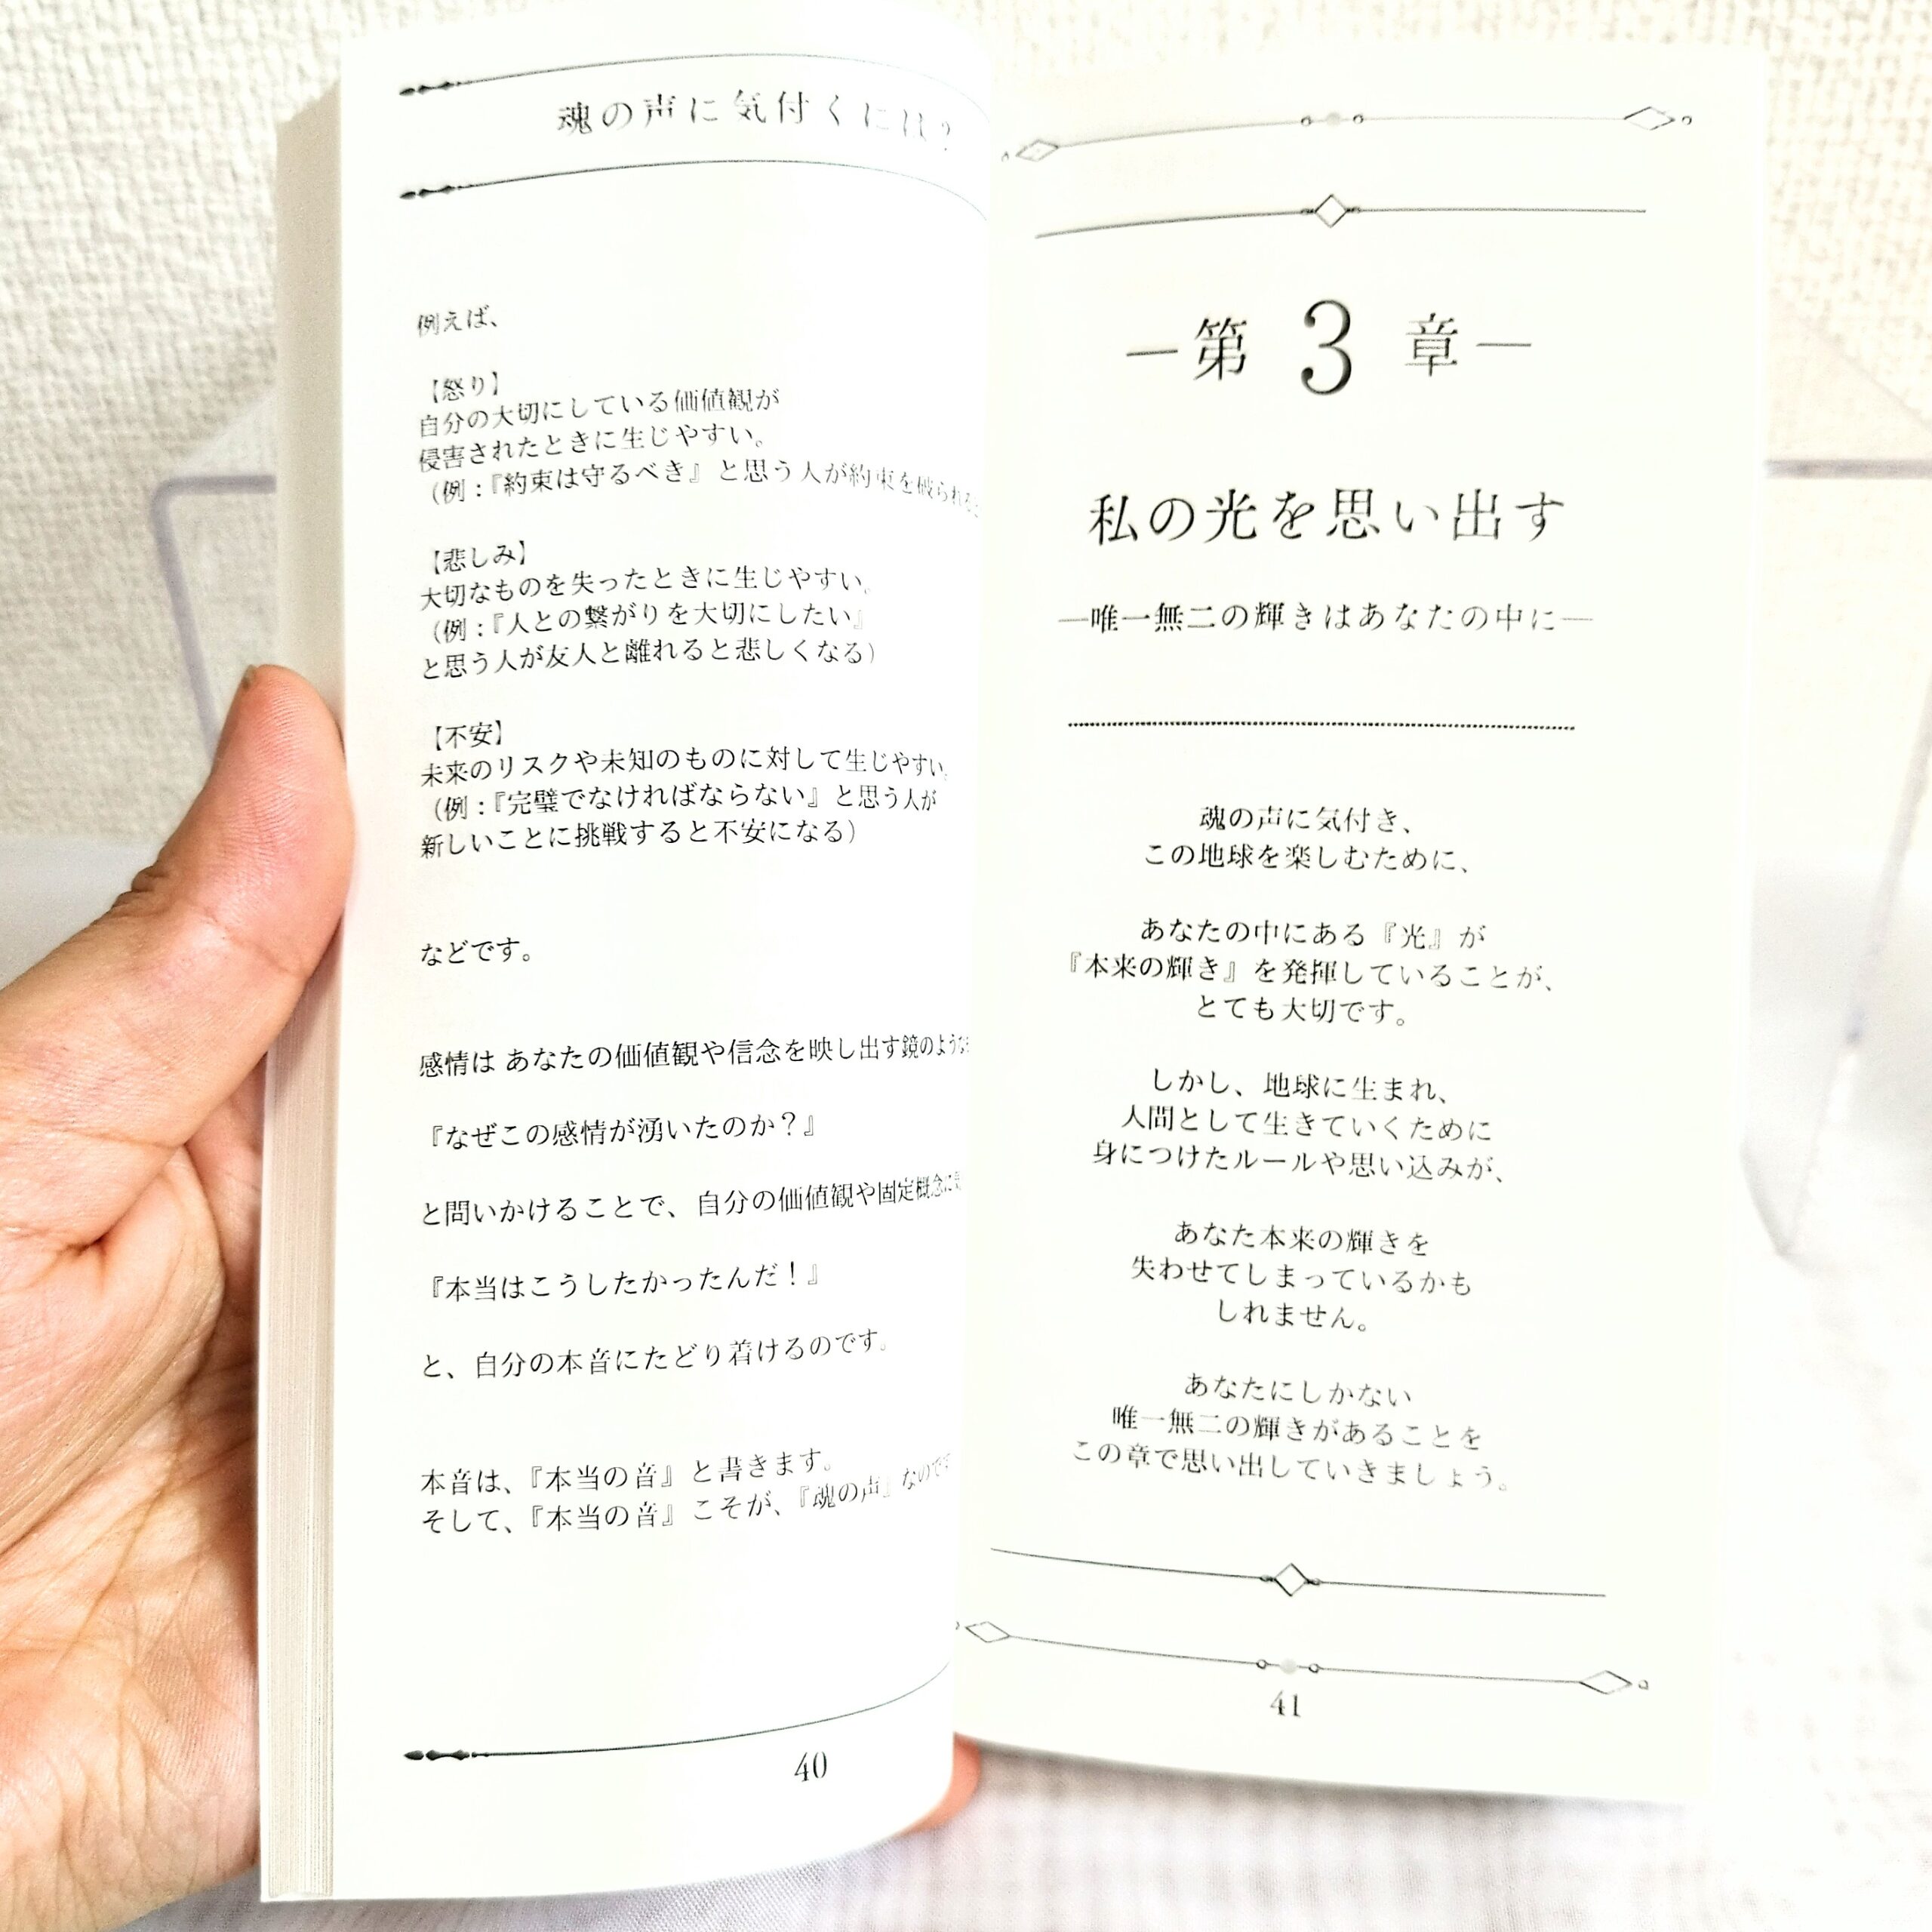 魂の声に気付くには？
例えば、
【怒り】
自分の大切にしている価値観が
侵害されたときに生じやすい。
（例：『約束は守るべき』と思う人が約束を破られると
【悲しみ】
大切なものを失ったときに生じやすい。
（例：『人との繋がりを大切にしたい』
と思う人が友人と離れると悲しくなる）
【不安】
未来のリスクや未知のものに対して生じやすい。
（例：『完璧でなければならない』と思う人が
新しいことに挑戦すると不安になる）
などです。
感情は あなたの価値観や信念を映し出す鏡のような
『なぜこの感情が湧いたのか？』
と問いかけることで、自分の価値観や固定概念に
『本当はこうしたかったんだ！』
と、自分の本音にたどり着けるのです。
本音は、『本当の音』と書きます。
そして、『本当の音』こそが、『魂の声』なのです
40
―第 3 章―
私の光を思い出す
―唯一無二の輝きはあなたの中に―
魂の声に気付き、
この地球を楽しむために、
あなたの中にある『光』が
『本来の輝き』を発揮していることが、
とても大切です。
しかし、地球に生まれ、
人間として生きていくために
身につけたルールや思い込みが、
あなた本来の輝きを
失わせてしまっているかも
しれません。
あなたにしかない
唯一無二の輝きがあることを
この章で思い出していきましょう。
41